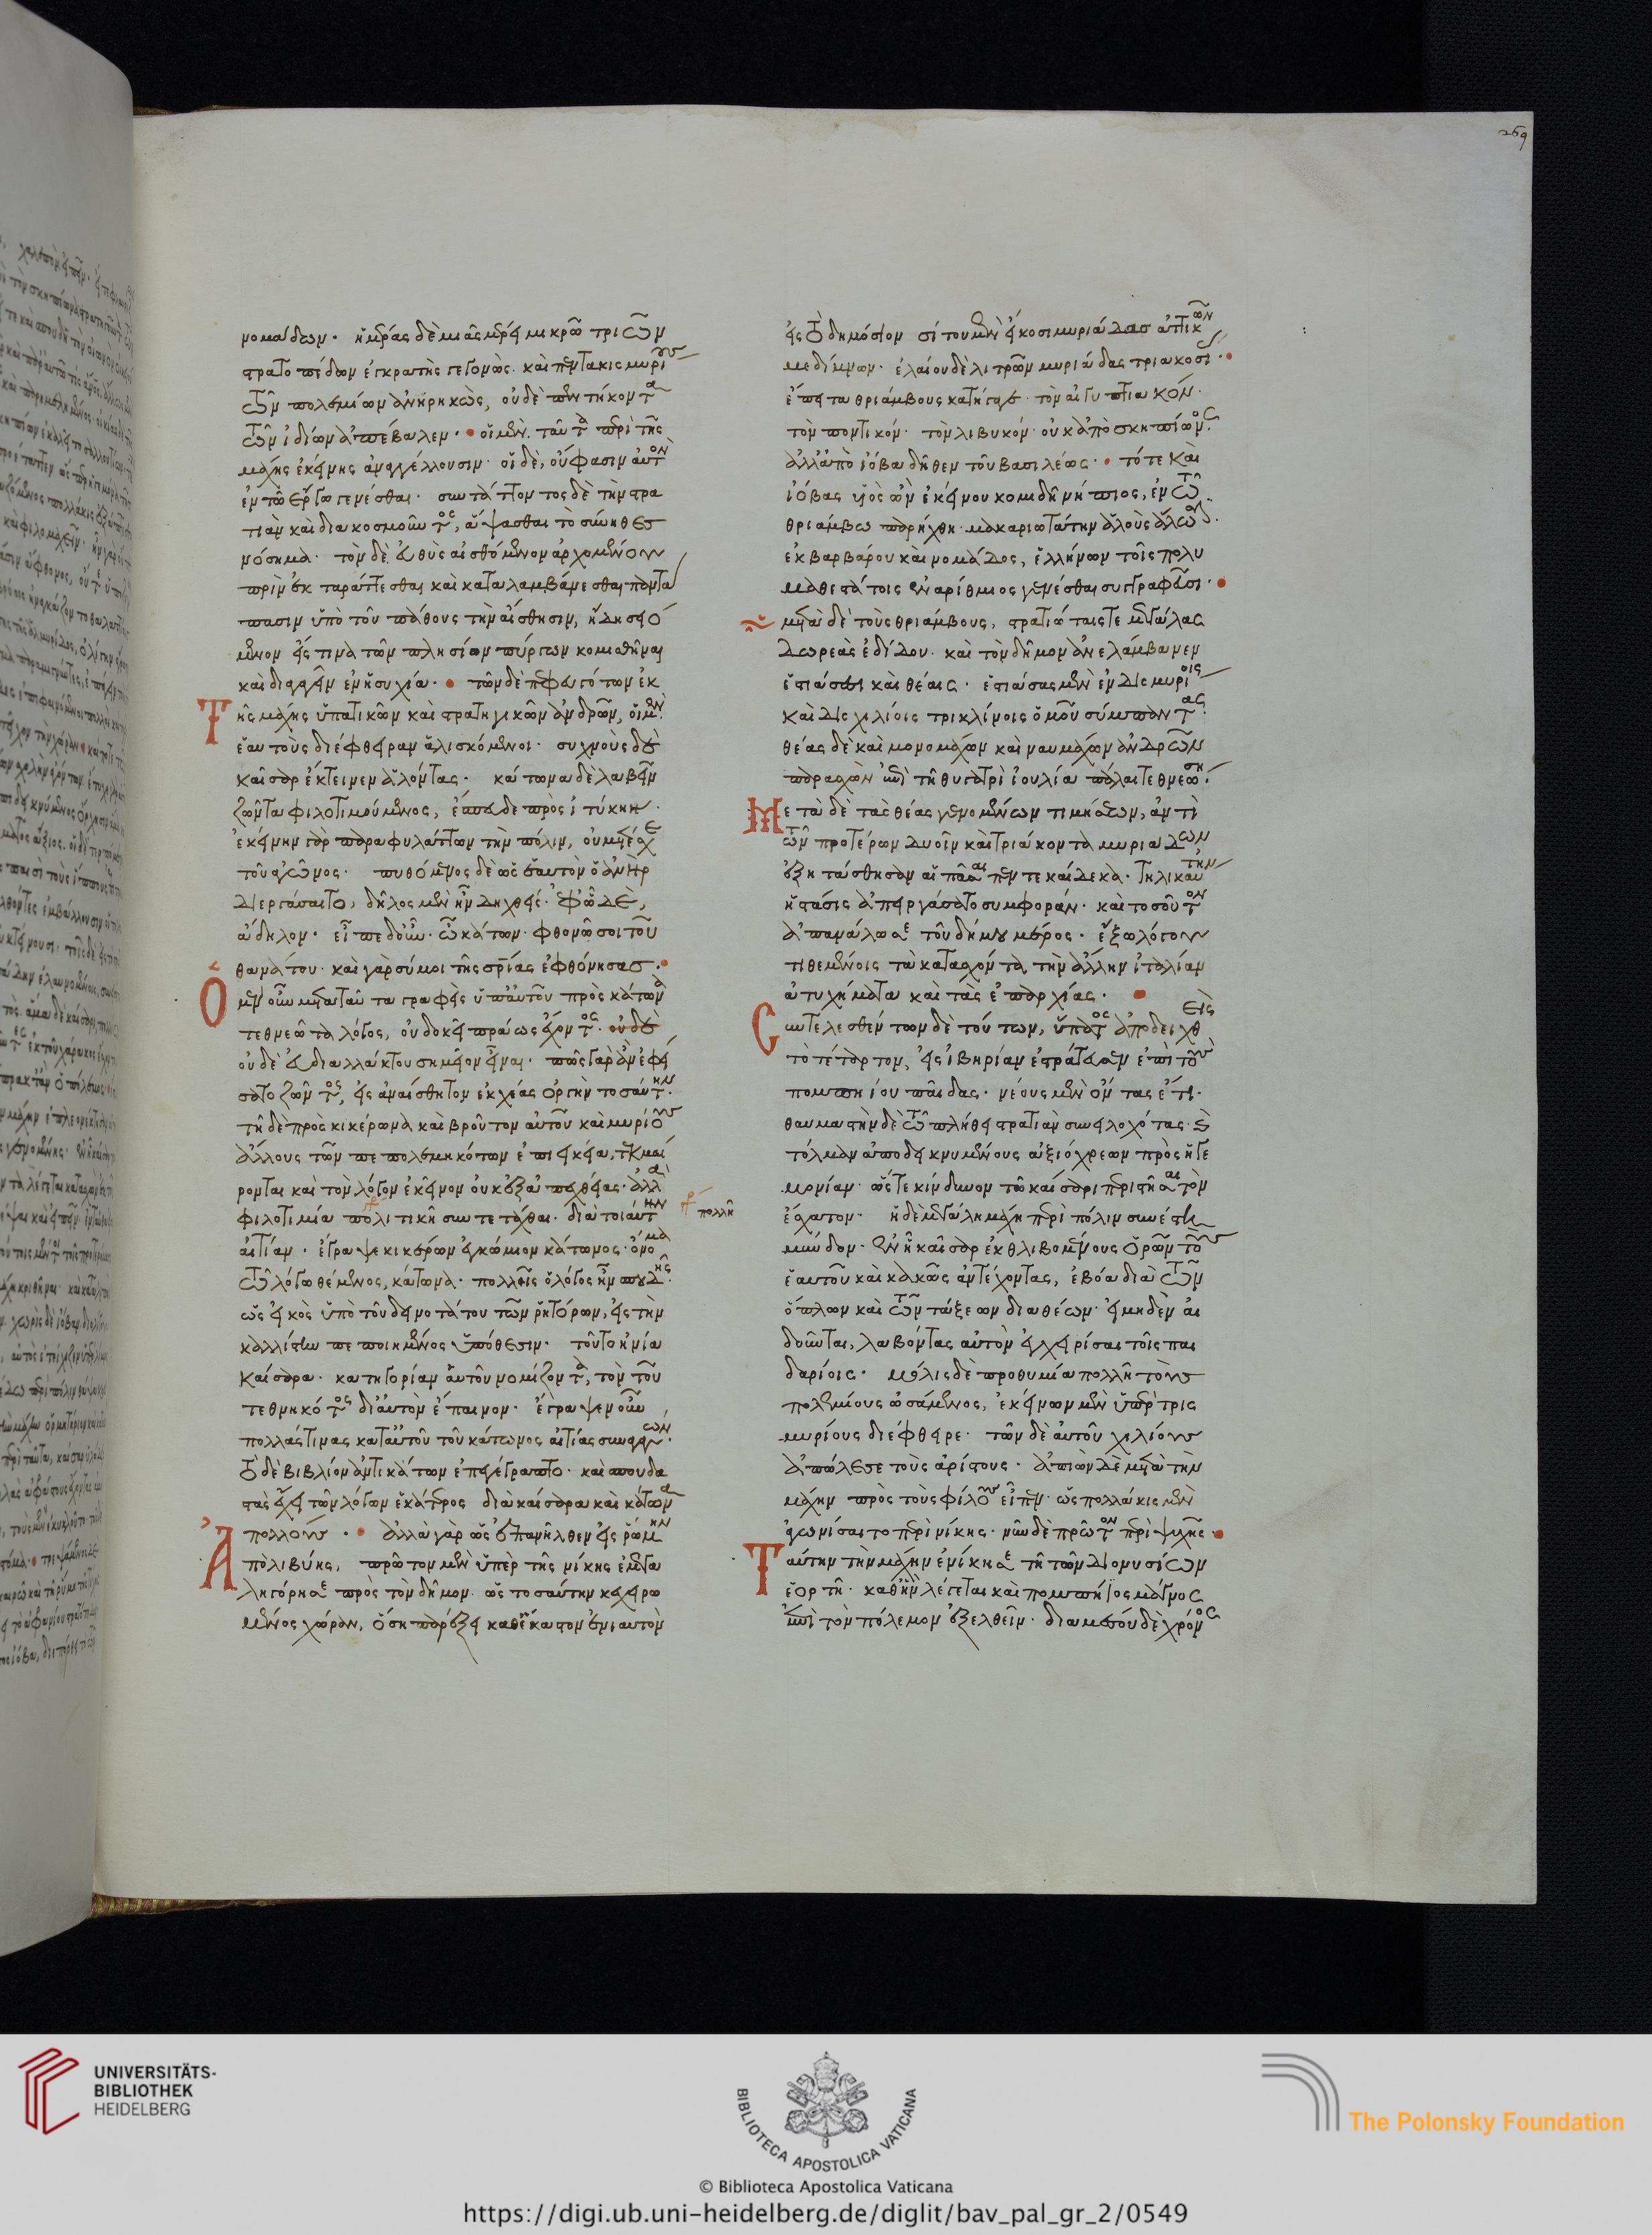 269
νομάδων· ἡμέρας δὲ μιᾶς μέρει μικρῷ τριῶν
στρατοπέδων ἐγκρατὴς γεγονὼς· καὶ πεντακισμυρίους
τῶν πολεμίων ἀνηρηκὼς, οὐδὲ πεντήκοντα
τῶν ἰδίων ἀπέβαλεν· οἱ μὲν ταῦτα περὶ τῆς
μάχης ἐκείνης ἀναγγέλλουσιν· οἱ δὲ, οὔ φασιν αὐτὸν
ἐν τῷ ἔργῳ γενέσθαι· συντάττοντος δὲ τὴν στρα
τιὰν καὶ διακοσμοῦντος, ἅψασθαι τὸ σύνηθες
νόσημα· τὸν δὲ, εὐθὺς αἰσθόμενον ἀρχομένου
πρὶν ἐκταράττεσθαι καὶ καταλαμβάνεσθαι παντά
πασιν ὑπὸ τοῦ πάθους τὴν αἴσθησιν, ἤδη σειό
μενον εἴς τινα τῶν πλησίων πύργων κομισθῆναι
καὶ διαγαγεῖν ἐν ἡσυχίᾳ· τῶν δὲ πεφευγότων ἐκ
Τῆς μάχης ὑπατικῶν καὶ στρατηγικῶν ἀνδρῶν, οἱ μὲν
ἑαυτοὺς διέφθειραν ἁλισκόμενοι· συχνοὺς δὲ
καῖσαρ ἔκτεινεν ἁλόντας· κάτωνα δὲ λαβεῖν
ζῶντα φιλοτιμούμενος, ἔσπευδε πρὸς ἰτύκην·
ἐκείνην γὰρ παραφυλάττων τὴν πόλιν, οὐ μετέσχε
τοῦ ἀγῶνος· πυθόμενος δὲ ὡς ἑαυτὸν ὁ ἀνὴρ
διεργάσαιτο, δῆλος μὲν ἦν δηχθείς· ἐφ' ᾧ δὲ,
ἄδηλον· εἶπε δ' οὖν· ὦ κάτων· φθονῶ σοι τοῦ
θανάτου· καὶ γὰρ σύ μοι τῆς σωτηρίας ἐφθόνησας·
Ὁ μὲν οὖν μετὰ ταῦτα γραφεὶς ὑπ' αὐτοῦ πρὸς κάτωνα
τεθνεῶτα λόγος, οὐ δοκεῖ πράως ἔχοντος· οὐδὲ
οὐδὲ εὐδιαλλάκτου σημεῖον εἶναι· πῶς γὰρ ἂν ἐφεί
σατο ζῶντος, εἰς ἀναίσθητον ἐκχέας ὀργὴν τοσαύτην·
τῇ δὲ πρὸς κικέρωνα καὶ βροῦτον αὐτοῦ καὶ μυρίους
ἄλλους τῶν πεπολεμηκότων ἐπιεικείᾳ, τεκμαί
ρονται καὶ τὸν λόγον ἐκεῖνον οὐκ ἐξ ἀπεχθείας· ἀλλὰ
φιλοτιμίᾳ πολιτικῇ συντετάχθαι· διὰ τοιαύτην
πολλῆ
αἰτίαν· ἔγραψε κικέρων ἐγκώμιον κάτωνος· ὄνομα
τῷ λόγῳ θέμενος, κάτωνα· πολλοῖς ὁ λόγος ἦν σπουδῆς·
ὡς εἰκὸς ὑπὸ τοῦ δεινοτάτου τῶν ῥητόρων, εἰς τὴν
καλλίστην πεποιημένος ὑπόθεσιν· τοῦτο ἠνία
καίσαρα· κατηγορίαν αὐτοῦ νομίζοντα, τὸν τοῦ
τεθνηκότος δι' αὐτὸν ἔπαινον· ἔγραψεν οὖν
πολλάς τινας κατ' αὐτοῦ τοῦ κάτωνος αἰτίας συναγαγών·
τὸ δὲ βιβλίον ἀντικάτων ἐπιγέγραπτο· καὶ σπουδα
στὰς ἔχει τῶν λόγων ἑκάτερος διὰ καίσαρα καὶ κάτωνα
πολλούς· ἀλλὰ γὰρ ὡς ἐπανῆλθεν εἰς ῥώμην
Ἀπὸ λιβύης, πρῶτον μὲν ὑπὲρ τῆς νίκης ἐμεγα
ληγόρησε πρὸς τὸν δῆμον· ὡς τοσαύτην κεχειρω
μένος χώραν, ὅση παρέξει καθ' ἕκαστον ἐνιαυτὸν
εἰς τὸ δημόσιον σίτου μὲν εἴκοσι μυριάδας ἀττικῶν
μεδίμνων· ἐλαίου δὲ λιτρῶν μυριάδας τριακοσίας·
ἔπειτα θριάμβους κατήγαγε· τὸν αἰγυπτιακόν·
τὸν ποντικόν· τὸν λιβυκόν· οὐκ ἀπὸ σκηπίωνος·
ἀλλ' ἀπὸ ἰόβα δῆθεν τοῦ βασιλέως· τότε καὶ
ἰόβας υἱὸς ὢν ἐκείνου κομιδῇ νήπιος, ἐν τῷ
θριάμβῳ παρήχθη· μακαριωτάτην ἁλοὺς ἅλωσιν·
ἐκ βαρβάρου καὶ νομάδος, ἑλλήνων τοῖς πολυ
μαθεστάτοις ἐναρίθμιος γενέσθαι συγγραφεῦσι·
μετὰ δὲ τοὺς θριάμβους, στρατιώταις τε μεγάλας
δωρεὰς ἐδίδου· καὶ τὸν δῆμον ἀνελάμβανεν
ἑστιάσεσι καὶ θέαις· ἑστιάσας μὲν ἐν δισμυρίοις
καὶ δισχιλίοις τρικλίνοις ὁμοῦ σύμπαντας·
θέας δὲ καὶ μονομάχων καὶ ναυμάχων ἀνδρῶν
παραχὼν ἐπὶ τῇ θυγατρὶ ἰουλίᾳ πάλαι τεθνεώσῃ·
Μετὰ δὲ τὰς θέας γενομένων τιμήσεων, ἀντὶ
τῶν προτέρων δυοῖν καὶ τριάκοντα μυριάδων
ἐξητάσθησαν αἱ πᾶσαι πεντεκαίδεκα· τηλικαύτην
ἡ στάσις ἀπειργάσατο συμφοράν· καὶ τοσοῦτον
ἀπανάλωσε τοῦ δήμου μέρος· ἔξω λόγου
τιθεμένοις τὰ κατασχόντα τὴν ἄλλην ἰταλίαν
ἀτυχήματα καὶ τὰς ἐπαρχίας·
Συντελεσθέντων δὲ τούτων, ὕπατος ἀποδειχθεὶς
τὸ τέταρτον, εἰς ἰβηρίαν ἐστράτευσεν ἐπὶ τοὺς
πομπηίου παῖδας· νέους μὲν ὄντας ἔτι·
θαυμαστὴν δὲ τῷ πλήθει στρατιὰν συνειλοχότας· καὶ
τόλμαν ἀποδεικνυμένους ἀξιόχρεων πρὸς ἡγε
μονίαν· ὥστε κίνδυνον τῷ καίσαρι περιστῆσαι τὸν
ἔσχατον· ἡ δὲ μεγάλη μάχη περὶ πόλιν συνέστη
μούνδαν· ἐν ᾗ καῖσαρ ἐκθλιβομένους ὁρῶν τοὺς
ἑαυτοῦ καὶ κακῶς ἀντέχοντας, ἐβόα διὰ τῶν
ὅπλων καὶ τῶν τάξεων διαθέων· εἰ μηδὲν αἰ
δοῦνται, λαβόντας αὐτὸν ἐγχειρίσαι τοῖς παι
δαρίοις· μόλις δὲ προθυμίᾳ πολλῇ τοὺς
πολεμίους ὠσάμενος, ἐκείνων μὲν ὑπὲρ τρισ
μυρίους διέφθειρε· τῶν δὲ αὐτοῦ χιλίους
ἀπώλεσε τοὺς ἀρίστους· ἀπιὼν δὲ μετὰ τὴν
μάχην πρὸς τοὺς φίλους εἶπεν· ὡς πολλάκις μὲν
ἀγωνίσαιτο περὶ νίκης· νῦν δὲ πρῶτον περὶ ψυχῆς·
Ταύτην τὴν μάχην ἐνίκησε τῇ τῶν διονυσίων
ἑορτῇ· καθ' ἣν λέγεται καὶ πομπήϊος μάγνος
ἐπὶ τὸν πόλεμον ἐξελθεῖν· διὰ μέσου δὲ χρόνος
UNIVERSITÄTS-
BIBLIOTHEK
HEIDELBERG
BIBLIOTECA APOSTOLICA VATICANA
The Polonsky Foundation
© Biblioteca Apostolica Vaticana
https://digi.ub.uni-heidelberg.de/diglit/bav_pal_gr_2/0549